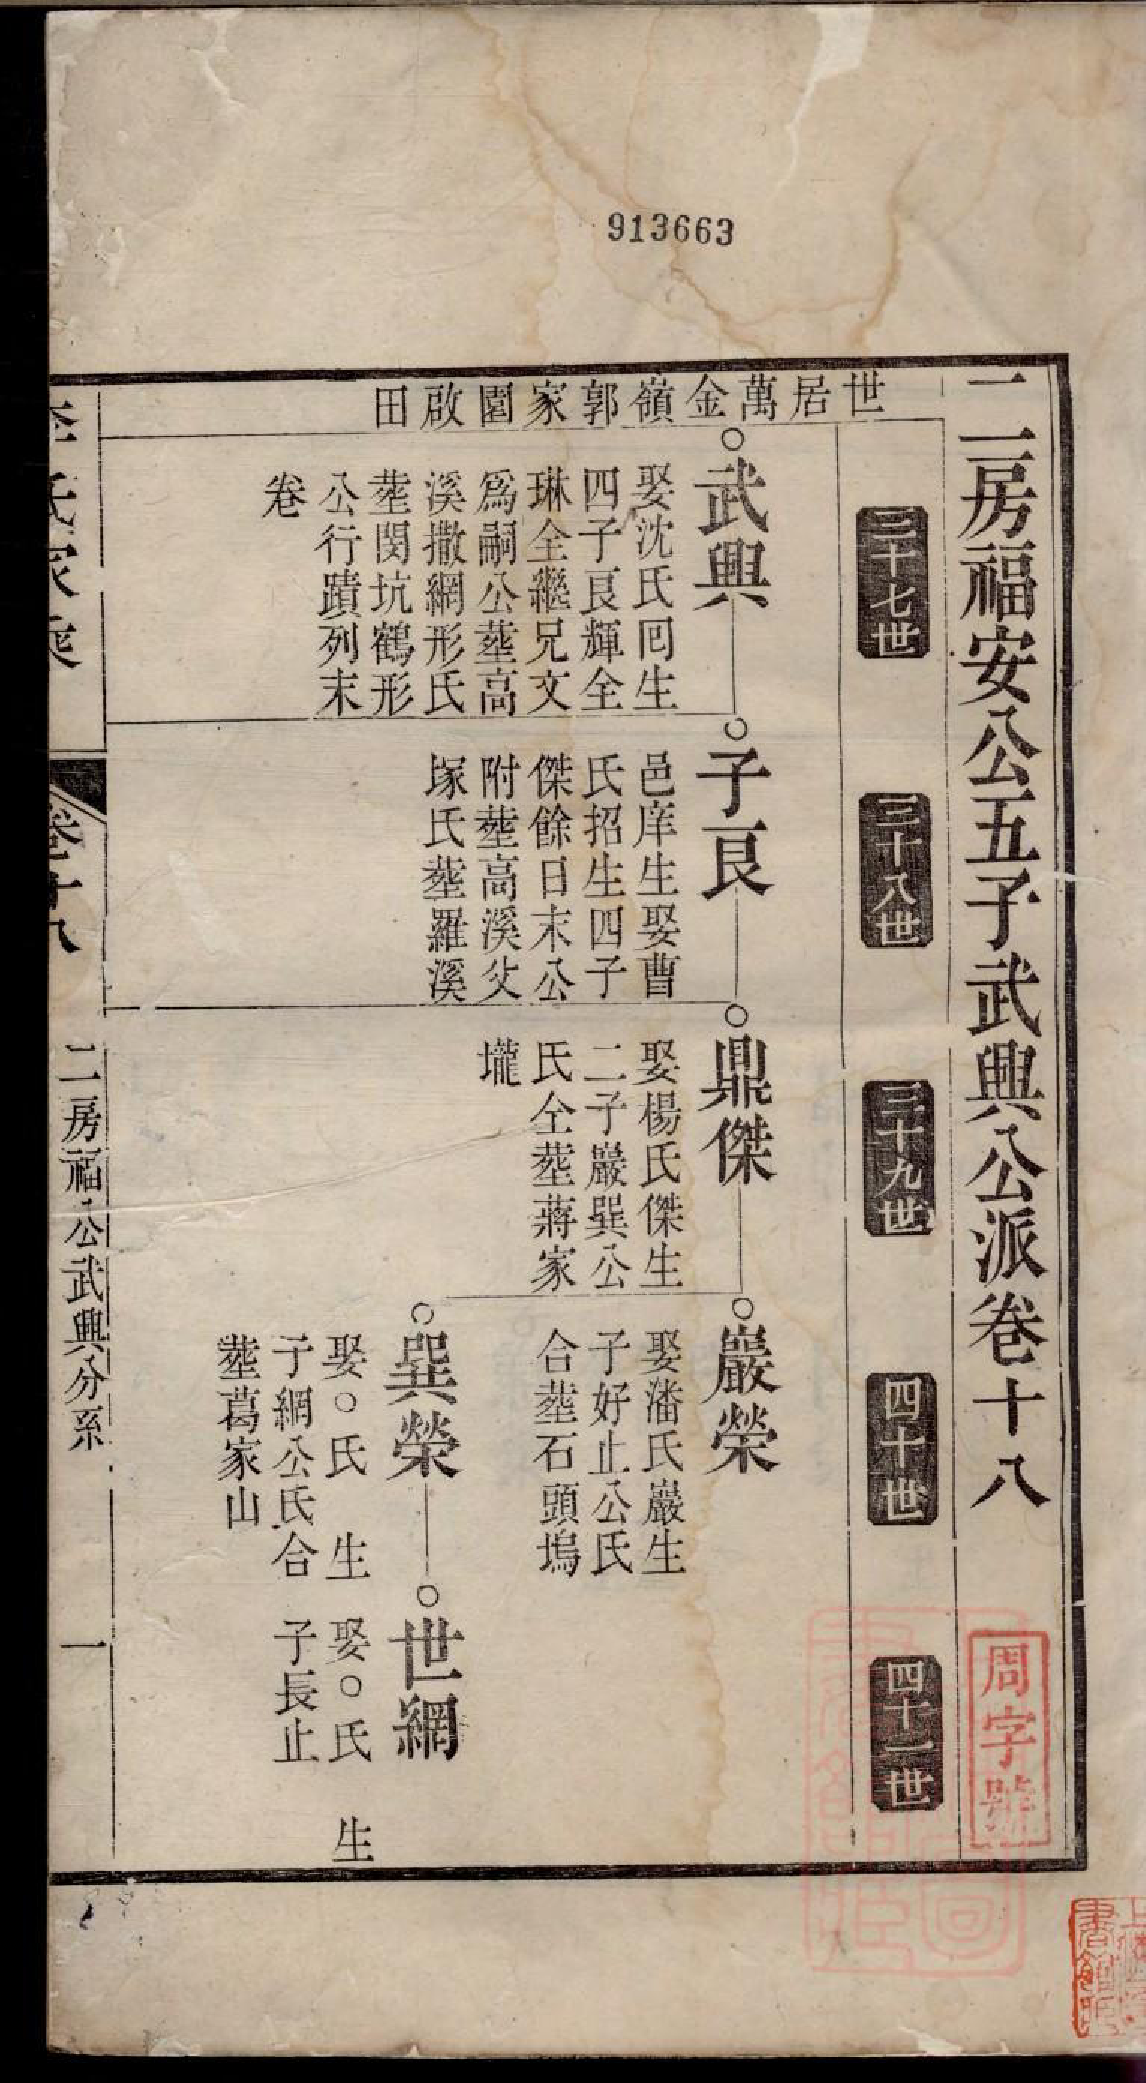 913663
二房福安公五子武興公派卷十八
周字號
三十七世
三十八世
三十九世
四十世
四十一世
世居萬金嶺郭家園啟田
武興
娶沈氏囘生
四子艮輝全
琳全繼兄文
爲嗣公塟高
溪撒網形氏
塟閔坑鶴形
公行蹟列末
卷
子艮
邑庠生娶曹
氏招生四子
傑餘日末公
附塟高溪父
塚氏塟羅溪
鼎傑
娶楊氏傑生
二子巖巽公
氏仝塟蔣家
壠
巖榮
娶潘氏巖生
子好止公氏
合塟石頭塢
巽榮
娶○氏 生
子網公氏合
塟葛家山
世網
娶○氏 生
子長止
李氏家乘
卷十八
二房福公武興分系
一